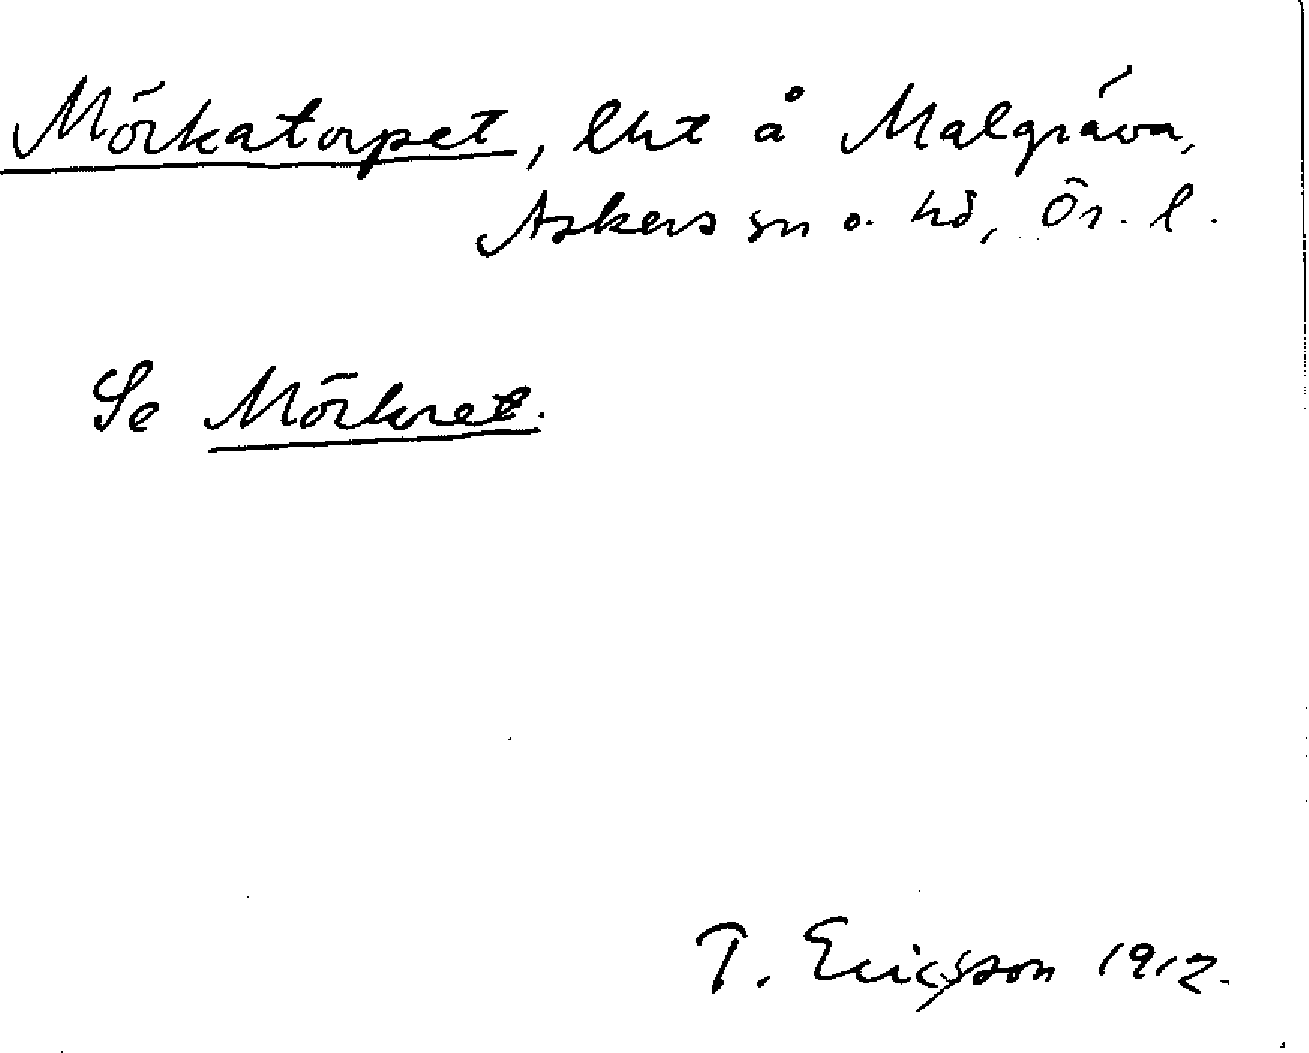 Mörkatorpet, lht å Malgräva,
Askers sn o. hd, Ör. l.
Se Mörkret.
T. Ericsson 1912.